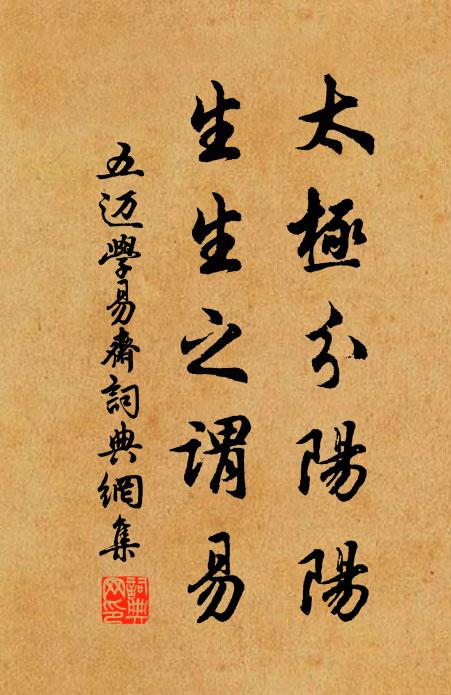 太極分陽陽
生生之謂易
五迈學易齋詞典網集
詞典網印